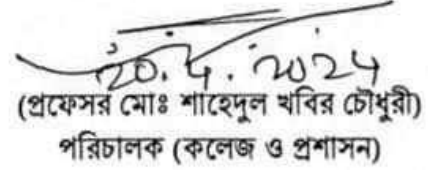 20.4.2024
(প্রফেসর মোঃ শাহেদুল খবির চৌধুরী)
পরিচালক (কলেজ ও প্রশাসন)